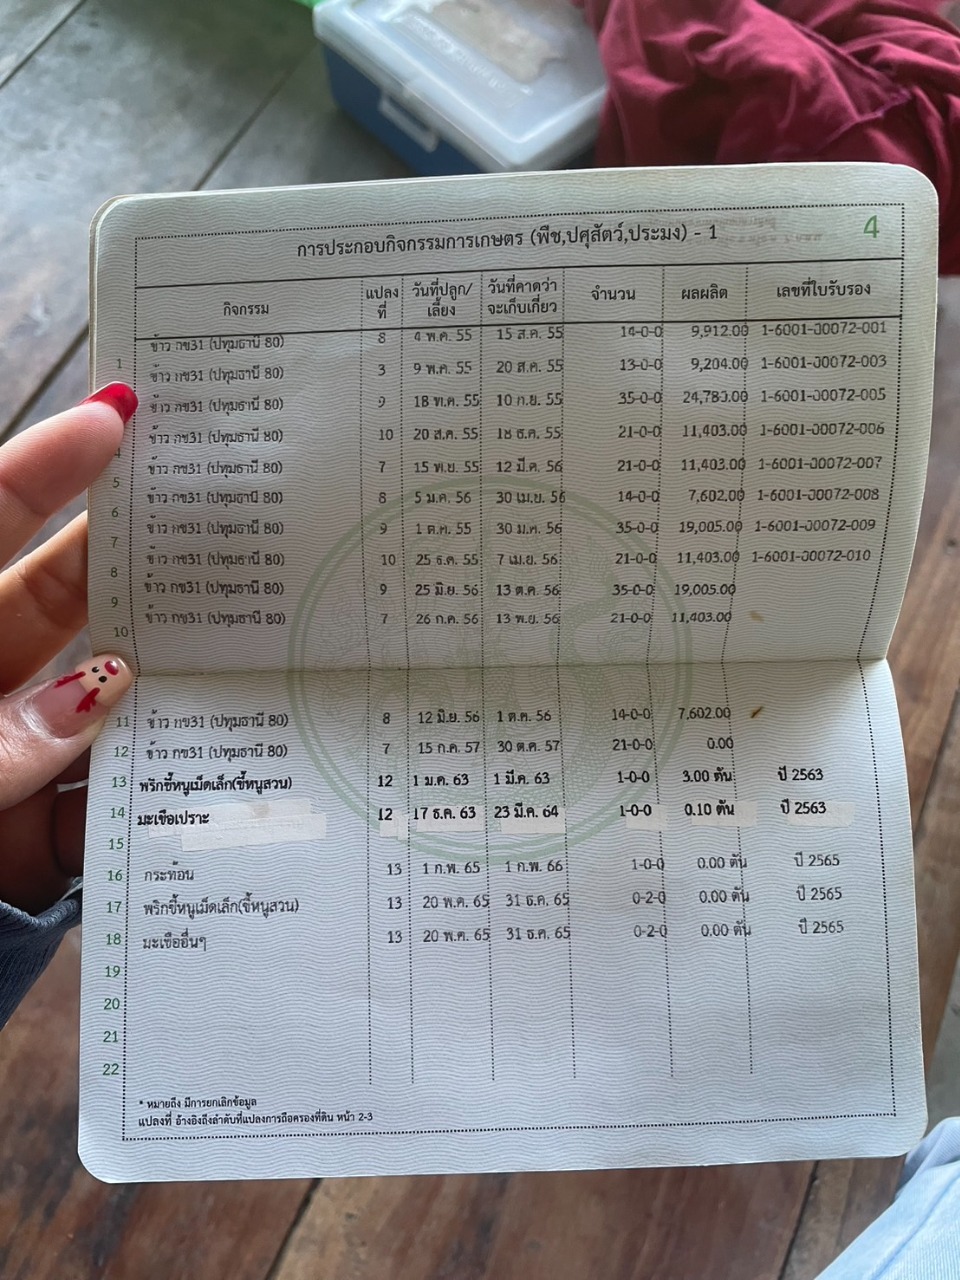 4
การประกอบกิจกรรมการเกษตร (พืช,ปศุสัตว์,ประมง) - 1
กิจกรรม แปลงที่ วันที่ปลูก/เลี้ยง วันที่คาดว่าจะเก็บเกี่ยว จำนวน ผลผลิต เลขที่ใบรับรอง
1 ข้าว กข31 (ปทุมธานี 80) 8 4 พ.ค. 55 15 ส.ค. 55 14-0-0 9,912.00 1-6001-00072-001
ข้าว กข31 (ปทุมธานี 80) 3 9 พ.ค. 55 20 ส.ค. 55 13-0-0 9,204.00 1-6001-00072-003
ข้าว กข31 (ปทุมธานี 80) 9 18 พ.ค. 55 10 ก.ย. 55 35-0-0 24,780.00 1-6001-00072-005
4 ข้าว กข31 (ปทุมธานี 80) 10 20 ส.ค. 55 18 ธ.ค. 55 21-0-0 11,403.00 1-6001-00072-006
5 ข้าว กข31 (ปทุมธานี 80) 7 15 พ.ย. 55 12 มี.ค. 56 21-0-0 11,403.00 1-6001-00072-007
6 ข้าว กข31 (ปทุมธานี 80) 8 5 ม.ค. 56 30 เม.ย. 56 14-0-0 7,602.00 1-6001-00072-008
7 ข้าว กข31 (ปทุมธานี 80) 9 1 ต.ค. 55 30 ม.ค. 56 35-0-0 19,005.00 1-6001-00072-009
8 ข้าว กข31 (ปทุมธานี 80) 10 25 ธ.ค. 55 7 เม.ย. 56 21-0-0 11,403.00 1-6001-00072-010
9 ข้าว กข31 (ปทุมธานี 80) 9 25 มิ.ย. 56 13 ต.ค. 56 35-0-0 19,005.00
10 ข้าว กข31 (ปทุมธานี 80) 7 26 ก.ค. 56 13 พ.ย. 56 21-0-0 11,403.00
11 ข้าว กข31 (ปทุมธานี 80) 8 12 มิ.ย. 56 1 ต.ค. 56 14-0-0 7,602.00
12 ข้าว กข31 (ปทุมธานี 80) 7 15 ก.ค. 57 30 ต.ค. 57 21-0-0 0.00
13 พริกขี้หนูเม็ดเล็ก(ขี้หนูสวน) 12 1 ม.ค. 63 1 มี.ค. 63 1-0-0 3.00 ตัน ปี 2563
14 มะเขือเปราะ 12 17 ธ.ค. 63 23 มี.ค. 64 1-0-0 0.10 ตัน ปี 2563
15
16 กระท้อน 13 1 ก.พ. 65 1 ก.พ. 66 1-0-0 0.00 ตัน ปี 2565
17 พริกขี้หนูเม็ดเล็ก(ขี้หนูสวน) 13 20 พ.ค. 65 31 ธ.ค. 65 0-2-0 0.00 ตัน ปี 2565
18 มะเขืออื่นๆ 13 20 พ.ค. 65 31 ธ.ค. 65 0-2-0 0.00 ตัน ปี 2565
19
20
21
22
* หมายถึง มีการยกเลิกข้อมูล
แปลงที่ อ้างอิงถึงลำดับที่แปลงการถือครองที่ดิน หน้า 2-3